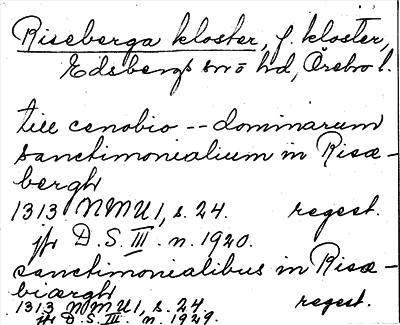 Riseberga kloster, f. kloster,
Edsbergs sn o hd, Örebro l.
till cenobio -- dominarum
sanctimonialium in Risæ-
bergh
1313 NMU 1, s. 24. regest.
jfr D.S. III. n. 1920.
sanctimonialibus in Risæ-
biærgh
1313 NMU 1, s. 24. regest.
jfr D.S. III. n. 1929.